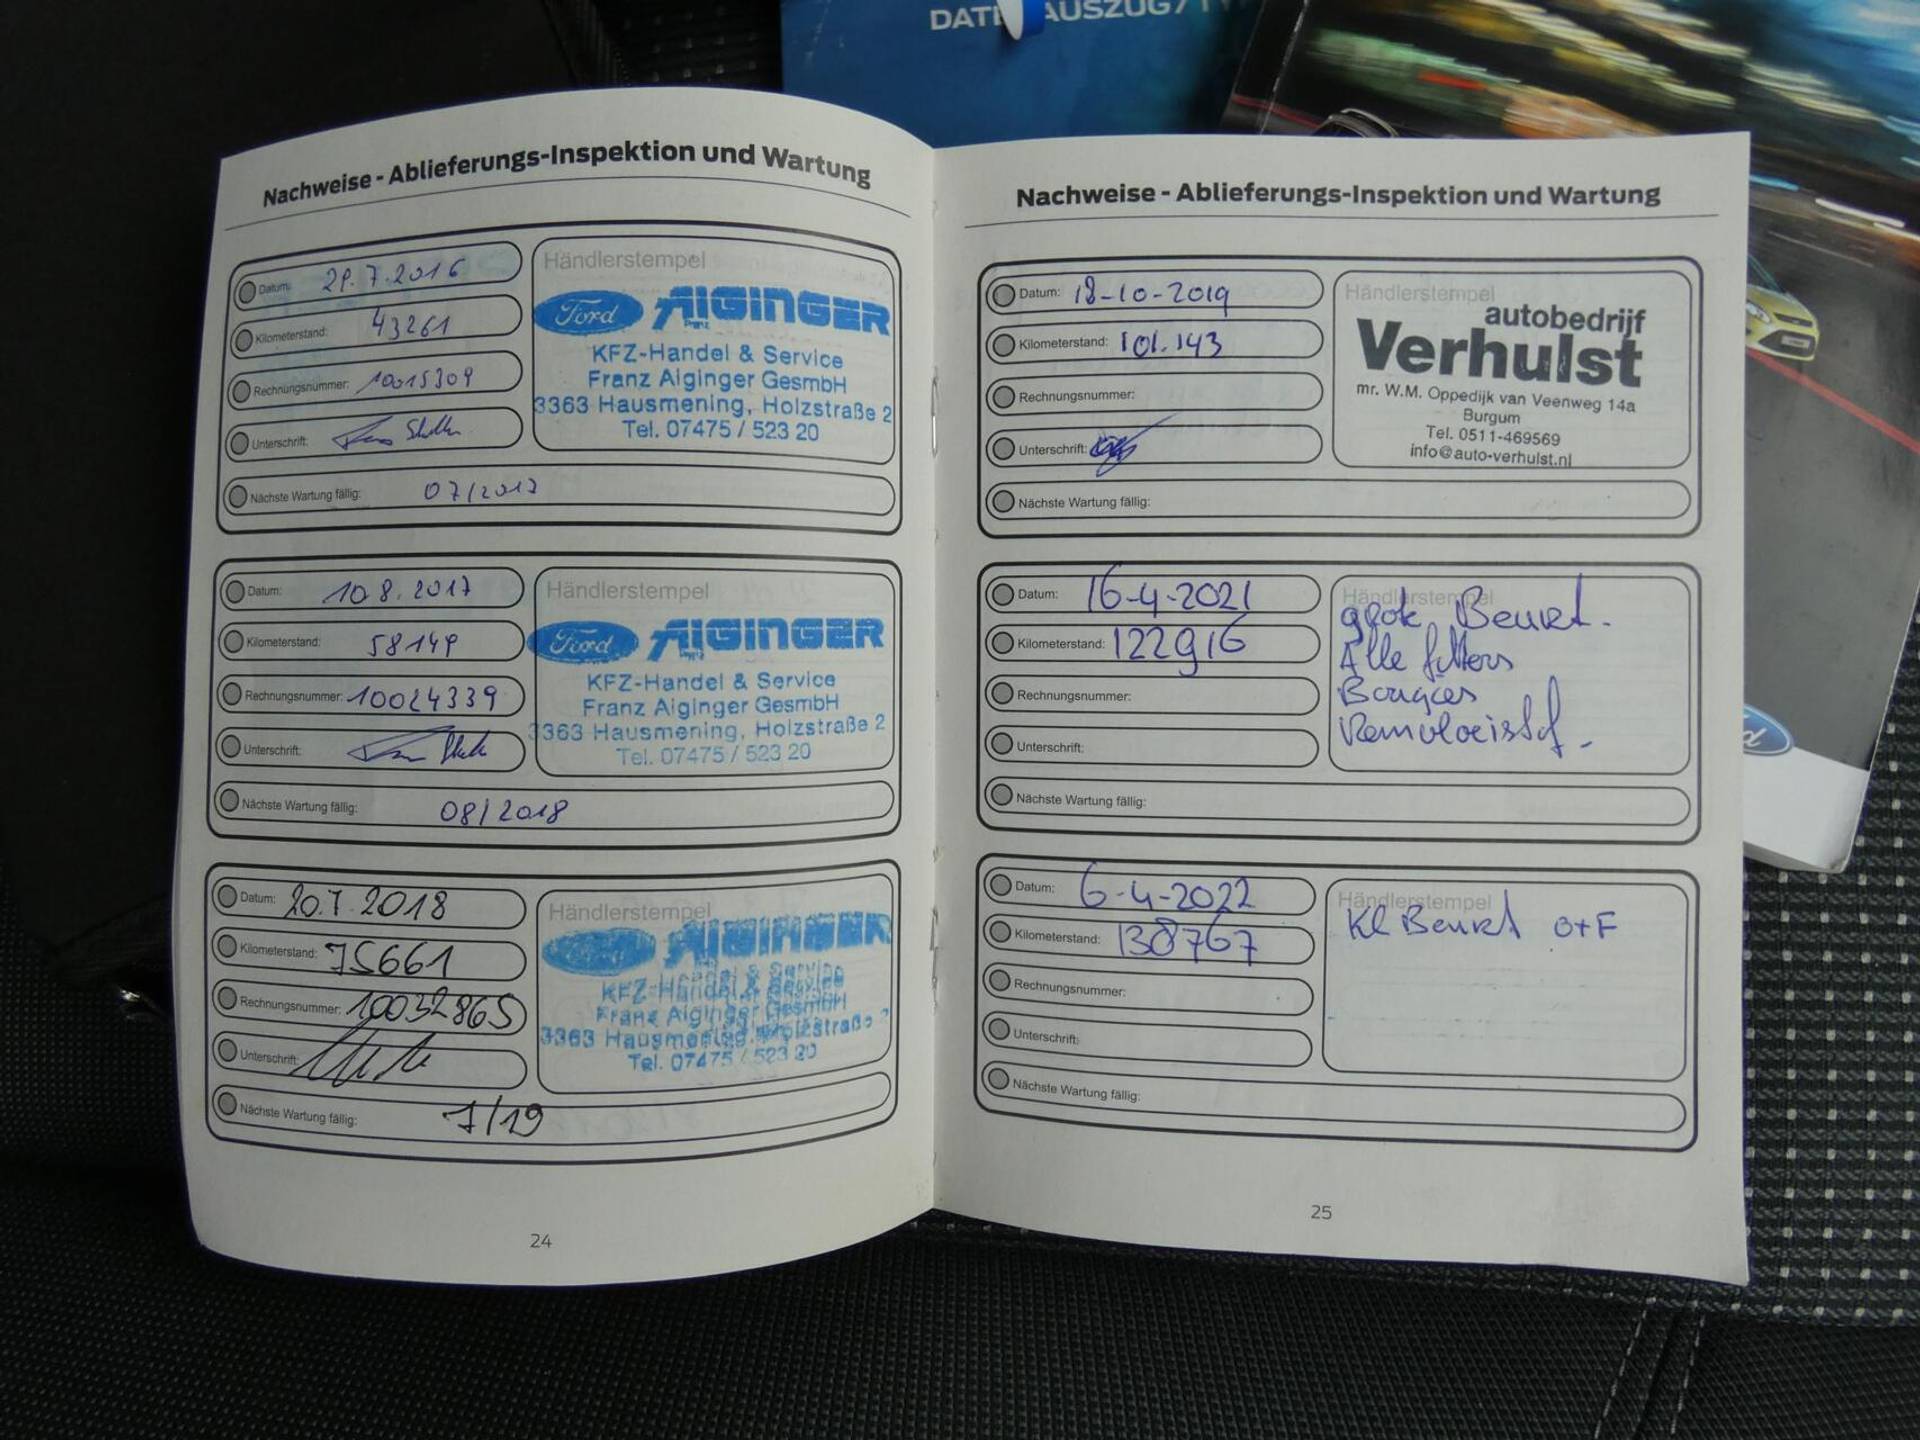 Nachweise - Ablieferungs-Inspektion und Wartung
Datum: 29.7.2016
Kilometerstand: 43261
Rechnungsnummer: 10015309
Unterschrift:
Nächste Wartung fällig: 07/2017
Händlerstempel
Ford AIGINGER
KFZ-Handel & Service
Franz Aiginger GesmbH
3363 Hausmening, Holzstraße 2
Tel. 07475 / 523 20
Datum: 10.8.2017
Kilometerstand: 58149
Rechnungsnummer: 10024339
Unterschrift:
Nächste Wartung fällig: 08/2018
Händlerstempel
Ford AIGINGER
KFZ-Handel & Service
Franz Aiginger GesmbH
3363 Hausmening, Holzstraße 2
Tel. 07475 / 523 20
Datum: 20.7.2018
Kilometerstand: 75661
Rechnungsnummer: 10032865
Unterschrift:
Nächste Wartung fällig: 7/19
Händlerstempel
Ford AIGINGER
KFZ-Handel & Service
Franz Aiginger GesmbH
3363 Hausmening, Holzstraße 2
Tel. 07475 / 523 20
24
Nachweise - Ablieferungs-Inspektion und Wartung
Datum: 18-10-2019
Kilometerstand: 101.143
Rechnungsnummer:
Unterschrift:
Nächste Wartung fällig:
Händlerstempel
autobedrijf
Verhulst
mr. W.M. Oppedijk van Veenweg 14a
Burgum
Tel. 0511-469569
info@auto-verhulst.nl
Datum: 16-4-2021
Kilometerstand: 122916
Rechnungsnummer:
Unterschrift:
Nächste Wartung fällig:
Händlerstempel
Beurt.
Alle filters
Bougies
Remvloeistof.
Datum: 6-4-2022
Kilometerstand: 130767
Rechnungsnummer:
Unterschrift:
Nächste Wartung fällig:
Händlerstempel
Kl Beurt O+F
25